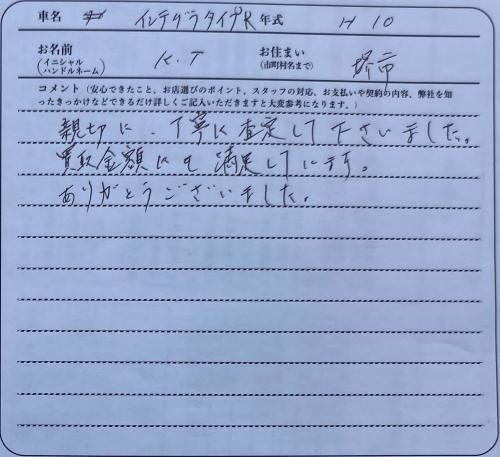 車名 インテグラタイプR 年式 H10
お名前 (イニシャル ハンドルネーム) K.T お住まい (市町村名まで) 堺市
コメント（安心できたこと、お店選びのポイント、スタッフの対応、お支払いや契約の内容、弊社を知
ったきっかけなどできるだけ詳しくご記入いただきますと大変参考になります。）
親切に、丁寧に査定して下さいました。
買取金額にも満足しています。
ありがとうございました。